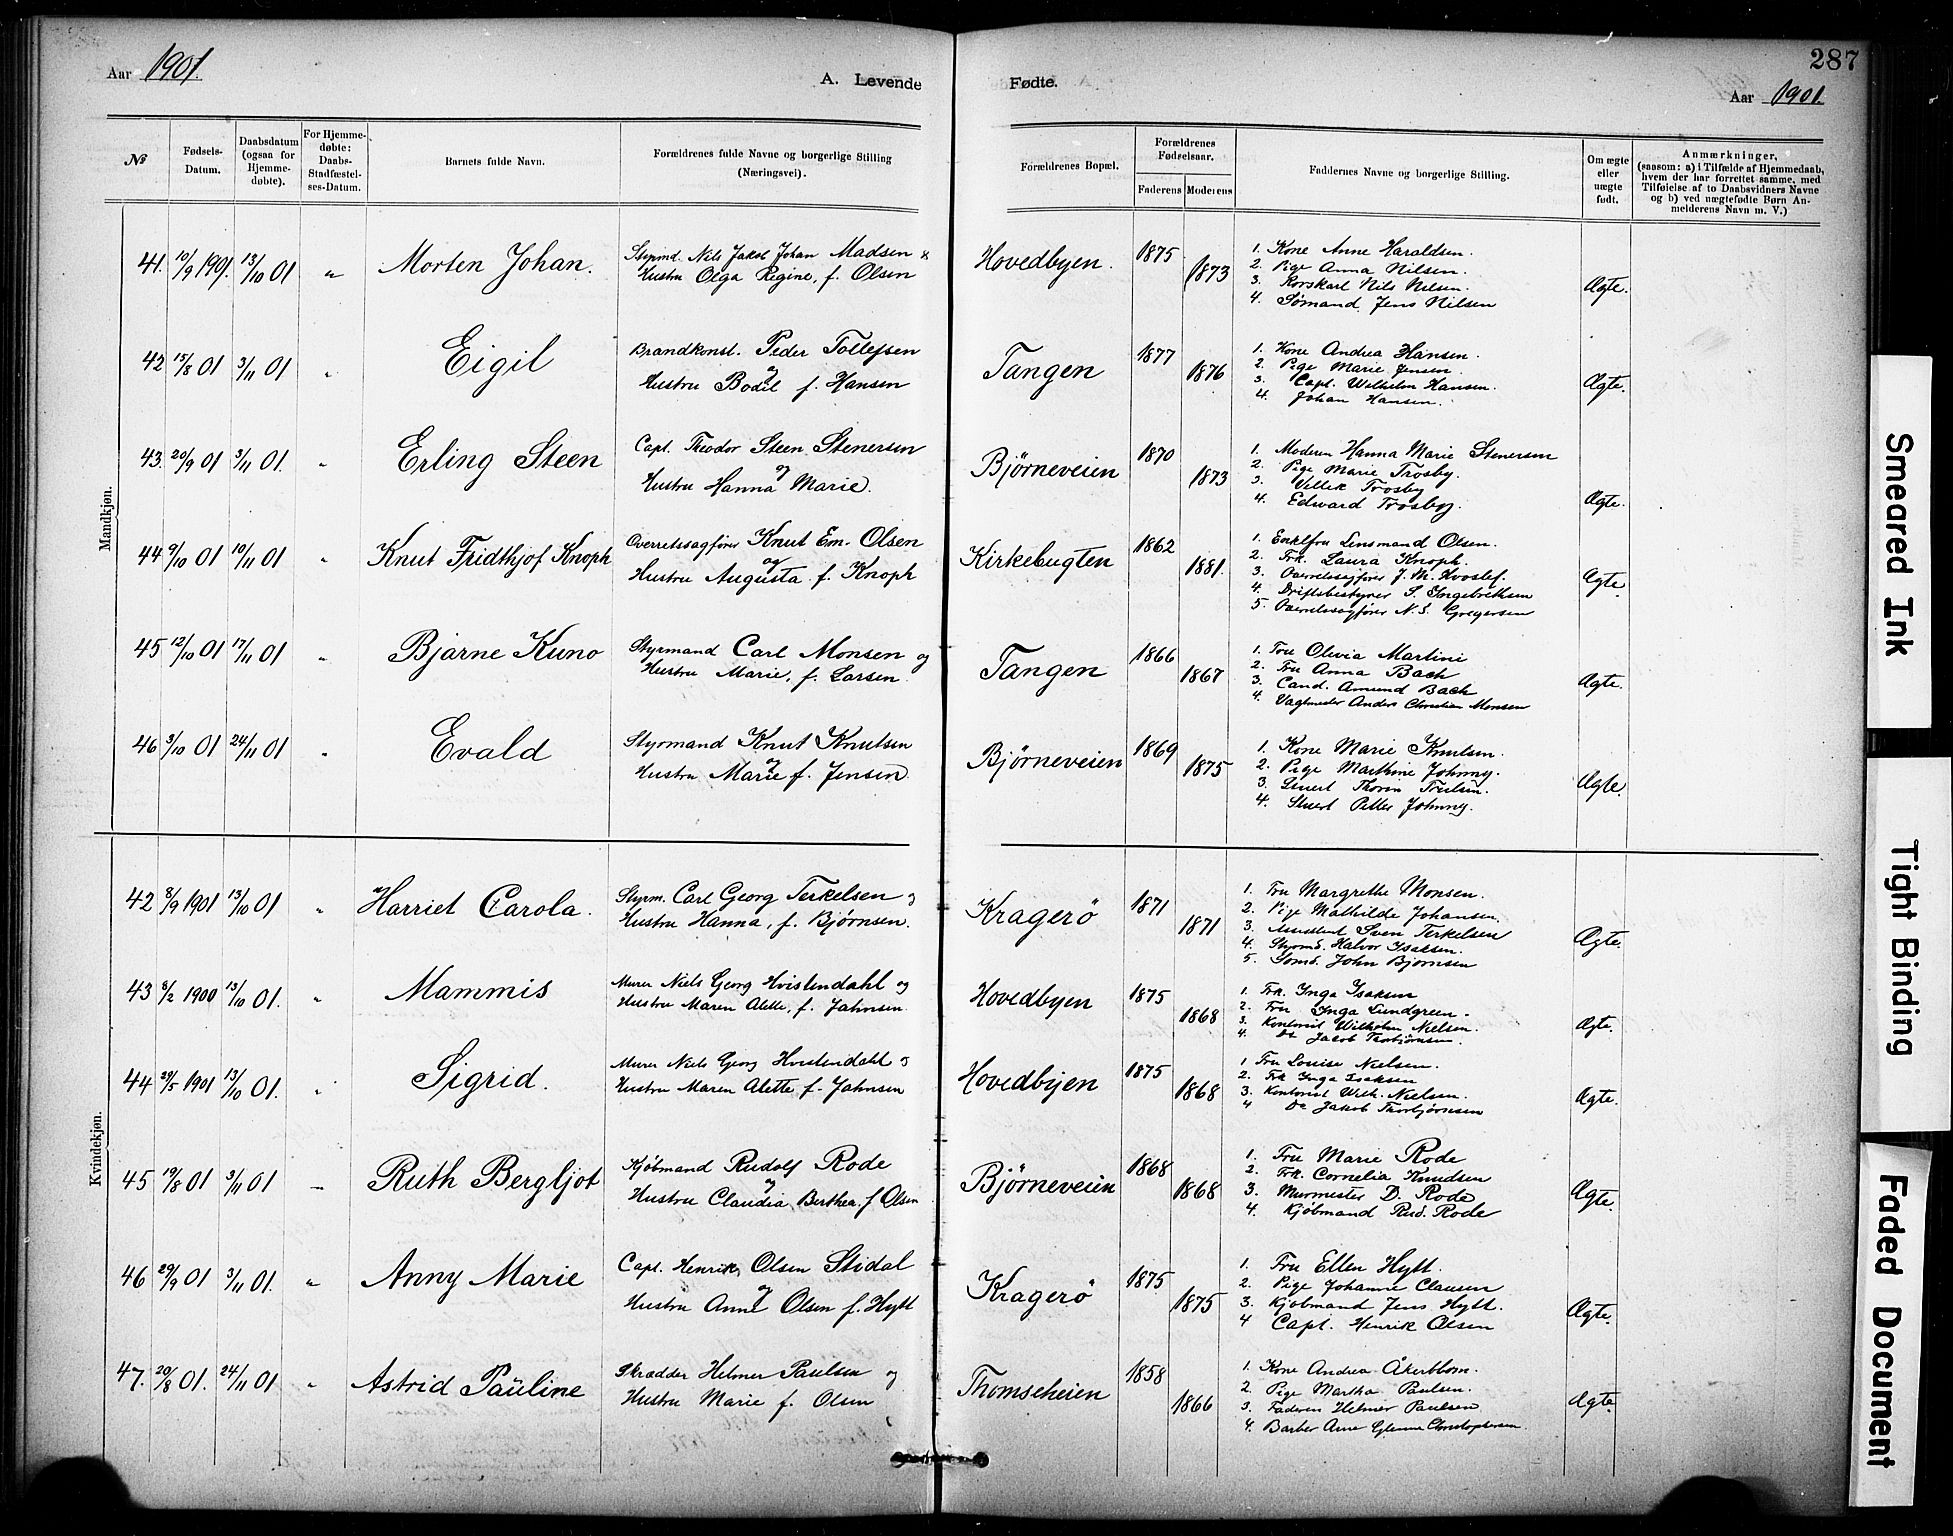 287
Aar 1901.
A. Levende Fødte.
Aar 1901
№
Fødsels-Datum.
Daabsdatum (ogsaa for Hjemmedøbte).
For Hjemmedøbte: Daabs-Stadfæstelses-Datum.
Barnets fulde Navn.
Forældrenes fulde Navne og borgerlige Stilling (Næringsvei).
Forældrenes Bopæl.
Forældrenes Fødselsaar.
Faderens Moderens
Faddernes Navne og borgerlige Stilling.
Om ægte eller uægte født.
Anmærkninger, (saasom: a) i Tilfælde af Hjemmedaab, hvem der har forrettet samme, med Tilføielse af to Daabsvidners Navne og b) ved uægtefødte Børn Anmelderens Navn m. V.)
Mandkjøn.
41. 10/9 1901. 13/10 01 " Morten Johan.
Styrmd. Nils Jakob Johan Madsen &
Hustru Olga Regine, f. Olsen
Hovedbyen. 1875 1873
1. Kone Anne Haraldsen.
2. Pige Anna Nilsen.
3. Korskarl Nils Nilsen.
4. Sømand Jens Nilsen
Ægte.
42 15/8 01 3/11 01 " Eigil
Brandkonst. Peder Tollefsen
og
Hustru Bodil f. Hansen
Tangen 1877 1876
1. Kone Andrea Hansen.
2. Pige Marie Jensen.
3. Capt. Wilhelm Hansen.
4. Johan Hansen.
Ægte.
43. 20/9 01 3/11 01. " Erling Steen
Capt. Theodor Steen Stenersen
og
Hustru Hanna Marie.
Bjørneveien 1870 1873
1. Moderen Hanna Marie Stenersen
2. Pige Marie Trosby.
3. Trosby
4. Edward Trosby.
Ægte.
44 9/10 01 10/11 01 " Knut Fridthjof Knoph
Overretssagfører Knut Em. Olsen
og
Hustru Augusta f. Knoph
Kirkebugten 1862 1881.
1. Enkefru Lensmand Olsen.
2. Frk. Laura Knoph.
3. Overretssagfører J. M.
4. Driftsbestyrer S. Ingebretksen
5. Overretssagfører N. S. Gregersen
Ægte.
45 12/10 01 17/11 01 " Bjarne Kuno
Styrmand Carl Monsen og
Hustru Marie, f. Larsen.
Tangen 1866 1867
1. Fru Olivia Martini
2. Fru Anna Bach
3. Cand. Amund Bach
4. Vagtmester Anders Christian Monsen
Ægte.
46 3/10 01 24/11 01 " Evald
Styrmand Knut Knutsen
og
Hustru Marie f. Jensen
Bjørneveien 1869 1875
1. Kone Marie Knutsen.
2. Pige Marthine Johnny.
3. Thorvn
4. Petter Johnny.
Ægte.
Kvindekjøn.
42 8/9 1901 13/10 01 " Harriet Carola.
Styrm. Carl Georg Terkelsen og
Hustru Hanna, f. Bjørnsen.
Kragerö 1871 1871
1. Fru Margrethe Monsen.
2. Pige Mathilde Johansen.
3. Assistent Sven Terkelsen
4. Styrmd. Halvor Isaksen.
5. Sømd. John Bjørnsen
Ægte.
43 8/2 1900 13/10 01. " Mammis
Murer Niels Georg Hvistendahl og
Hustru Maren Alette, f. Jahnsen.
Hovedbyen 1875 1868
1. Frk. Inga Isaksen
2. Fru Inga Lundgreen.
3. Kontorist Wilhelm Nielsen.
4. Do Jacob Thorbjørnsen.
Ægte.
44 29/5 1901 13/10 01. " Sigrid.
Murer Niels Georg Hvistendahl og
Hustru Maren Alette f. Jahnsen
Hovedbyen 1875 1868
1. Fru Louise Nielsen.
2. Frk Inga Isaksen
3. Kontorist Wilh. Nielsen.
4 Do Jakob Thorbjørnsen
Ægte.
45 19/8 01 3/11 01 — Ruth Bergljot
Kjøbmand Rudolf Rode
og
Hustru Claudia Berthea. f Olsen
Bjørneveien 1868 1868
1. Fru Marie Rode
2. Frk. Cornelia Knudsen
3. Murmester D. Rode
4. Kjøbmand Rud. Rode
Ægte.
46 29/9 01 3/11 01. " Anny Marie
Capt. Henrik Olsen Stidal
og
Hustru Anne Olsen f. Hytt
Kragerö 1875 1875
1. Fru Ellen Hytt.
2. Pige Johanne Clausen
3. Kjøbmand Jens Hytt.
4 Capt. Henrik Olsen
Ægte.
47. 20/8 01. 24/11 01 " Astrid Pauline
Skrædder Helmer Paulsen og
Hustru Marie f. Olsen
Thomseheien 1858 1866
1. Kone Andrea Åkerblom.
2. Pige Martha Paulsen.
3. Faderen Helmer Paulsen
4. Barber Arne Christophersen
Ægte.
Smeared Ink
Tight Binding
Faded Document